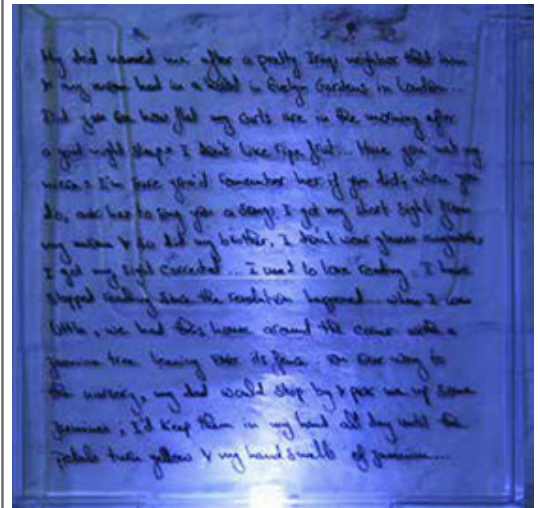 My dad named me after a pretty Iraqi neighbor that him
& my mom had in a hotel in Evelyn Gardens in London...
Did you see how flat my curls are in the morning after
a good night sleep? I don't like ripe fruit... Have you met my
niece? I'm sure you'd remember her if you did, when you
do, ask her to sing you a song. I got my short sight from
my mom & so did my brother, I don't wear glasses anymore,
I got my sight corrected... I used to love reading. I have
stopped reading since the revolution happened... when I was
little, we had this house around the corner with a
jasmine tree leaning over its fence. On our way to
the nursery, my dad would stop by & pick me up some
jasmines; I'd keep them in my hand all day until the
petals turn yellow & my hand smells of jasmine...